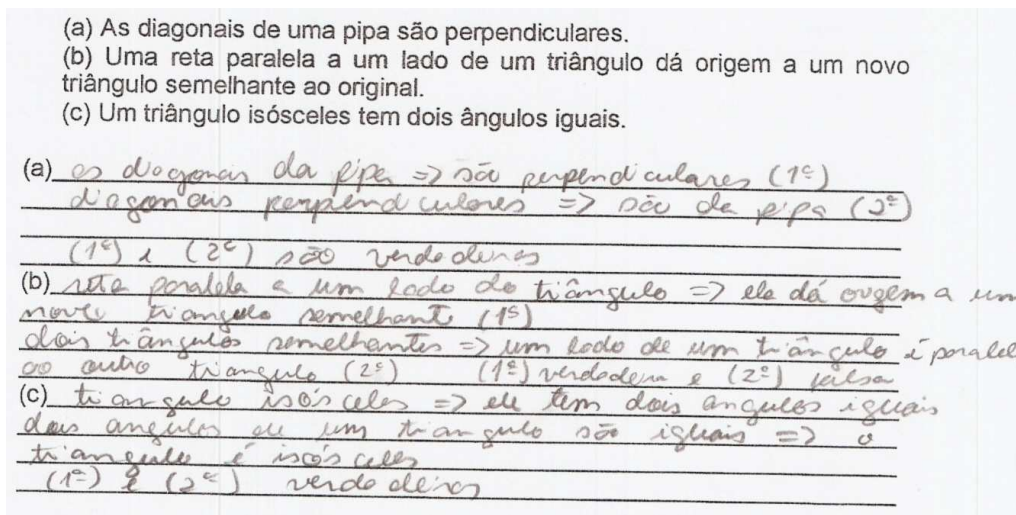 (a) As diagonais de uma pipa são perpendiculares.
(b) Uma reta paralela a um lado de um triângulo dá origem a um novo
triângulo semelhante ao original.
(c) Um triângulo isósceles tem dois ângulos iguais.
(a) as diagonais da pipa => são perpendiculares (1ª)
diagonais perpendiculares => são da pipa (2ª)
(1ª) e (2ª) são verdadeiras
(b) reta paralela a um lado do triângulo => ela dá origem a um
novo triangulo semelhante (1ª)
dois triângulos semelhantes => um lado de um triângulo é paralel
ao outro triangulo (2ª) (1ª) verdadeira e (2ª) falsa
(c) triangulo isósceles => ele tem dois angulos iguais
dois angulos de um triangulo são iguais => o
triangulo é isósceles
(1ª) e (2ª) verdadeiras